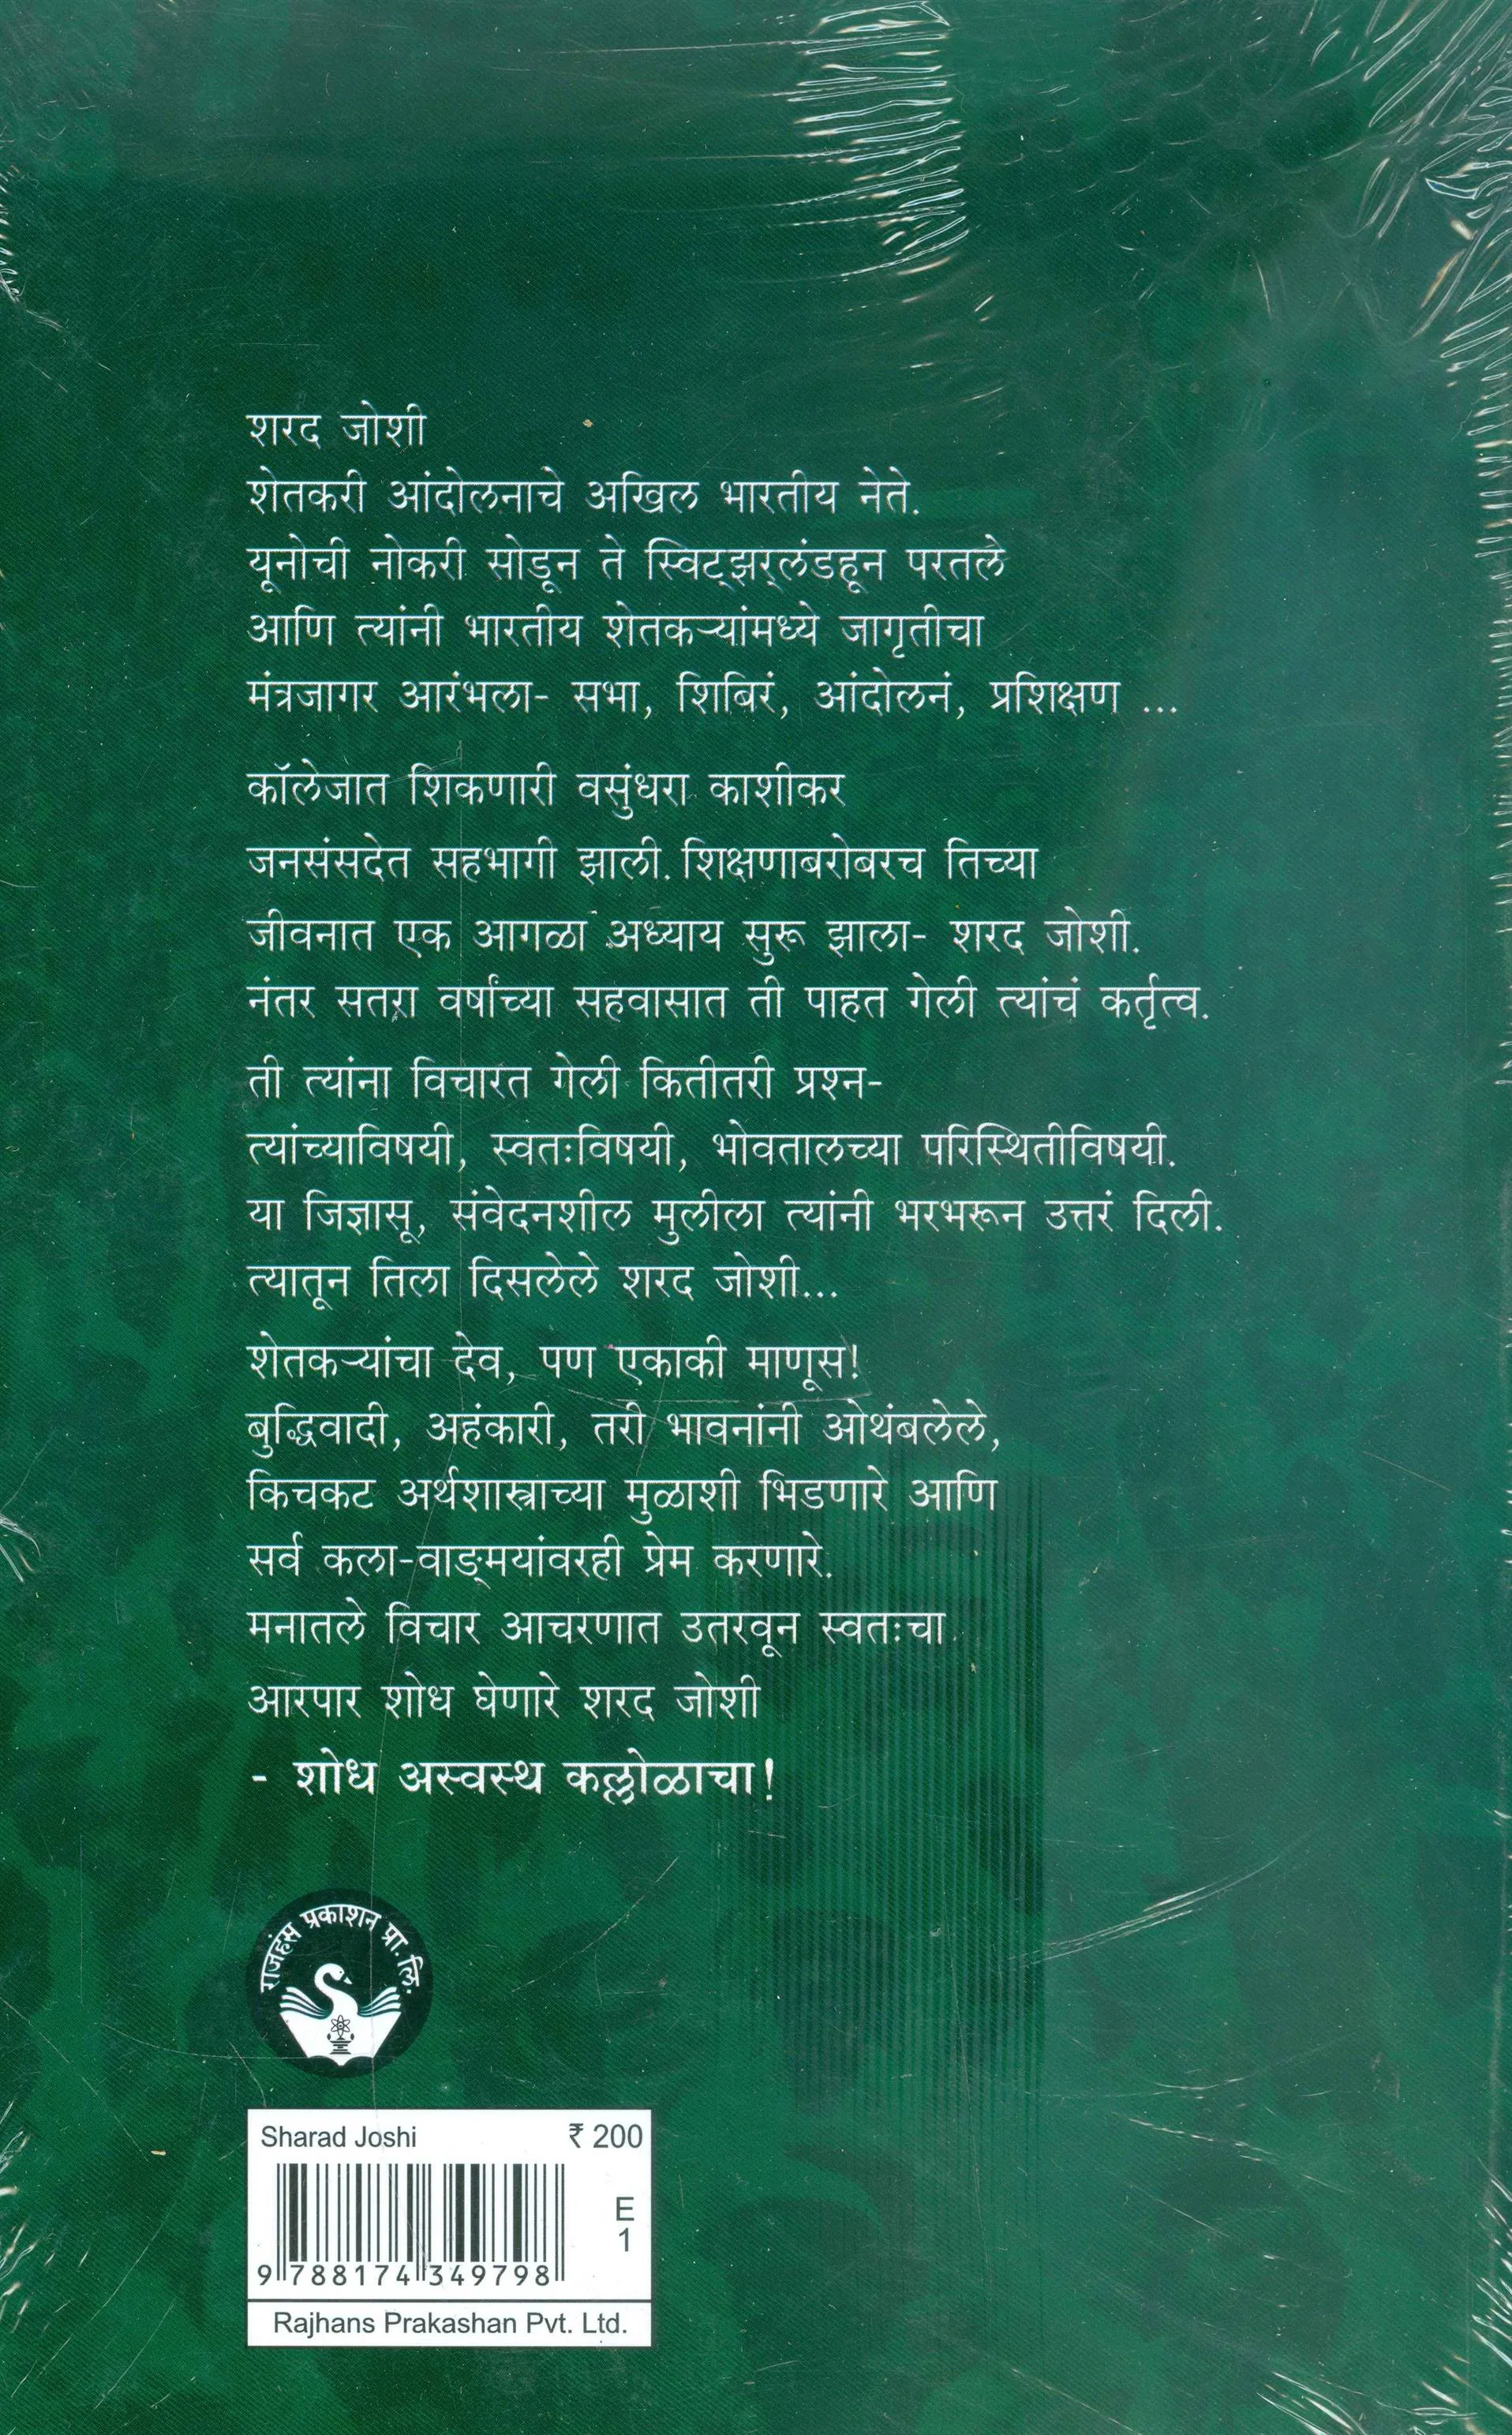 शरद जोशी
शेतकरी आंदोलनाचे अखिल भारतीय नेते.
यूनोची नोकरी सोडून ते स्विट्झर्लंडहून परतले
आणि त्यांनी भारतीय शेतकऱ्यांमध्ये जागृतीचा
मंत्रजागर आरंभला- सभा, शिबिरं, आंदोलनं, प्रशिक्षण ...
कॉलेजात शिकणारी वसुंधरा काशीकर
जनसंसदेत सहभागी झाली. शिक्षणाबरोबरच तिच्या
जीवनात एक आगळा अध्याय सुरू झाला- शरद जोशी.
नंतर सतरा वर्षांच्या सहवासात ती पाहत गेली त्यांचं कर्तृत्व.
ती त्यांना विचारत गेली कितीतरी प्रश्न-
त्यांच्याविषयी, स्वतःविषयी, भोवतालच्या परिस्थितीविषयी.
या जिज्ञासू, संवेदनशील मुलीला त्यांनी भरभरून उत्तरं दिली.
त्यातून तिला दिसलेले शरद जोशी...
शेतकऱ्यांचा देव, पण एकाकी माणूस!
बुद्धिवादी, अहंकारी, तरी भावनांनी ओथंबलेले,
किचकट अर्थशास्त्राच्या मुळाशी भिडणारे आणि
सर्व कला-वाङ्मयांवरही प्रेम करणारे.
मनातले विचार आचरणात उतरवून स्वतःचा
आरपार शोध घेणारे शरद जोशी
- शोध अस्वस्थ कल्लोळाचा!
राजहंस प्रकाशन प्रा. लि.
Sharad Joshi ₹ 200
E
1
9 788174 349798
Rajhans Prakashan Pvt. Ltd.